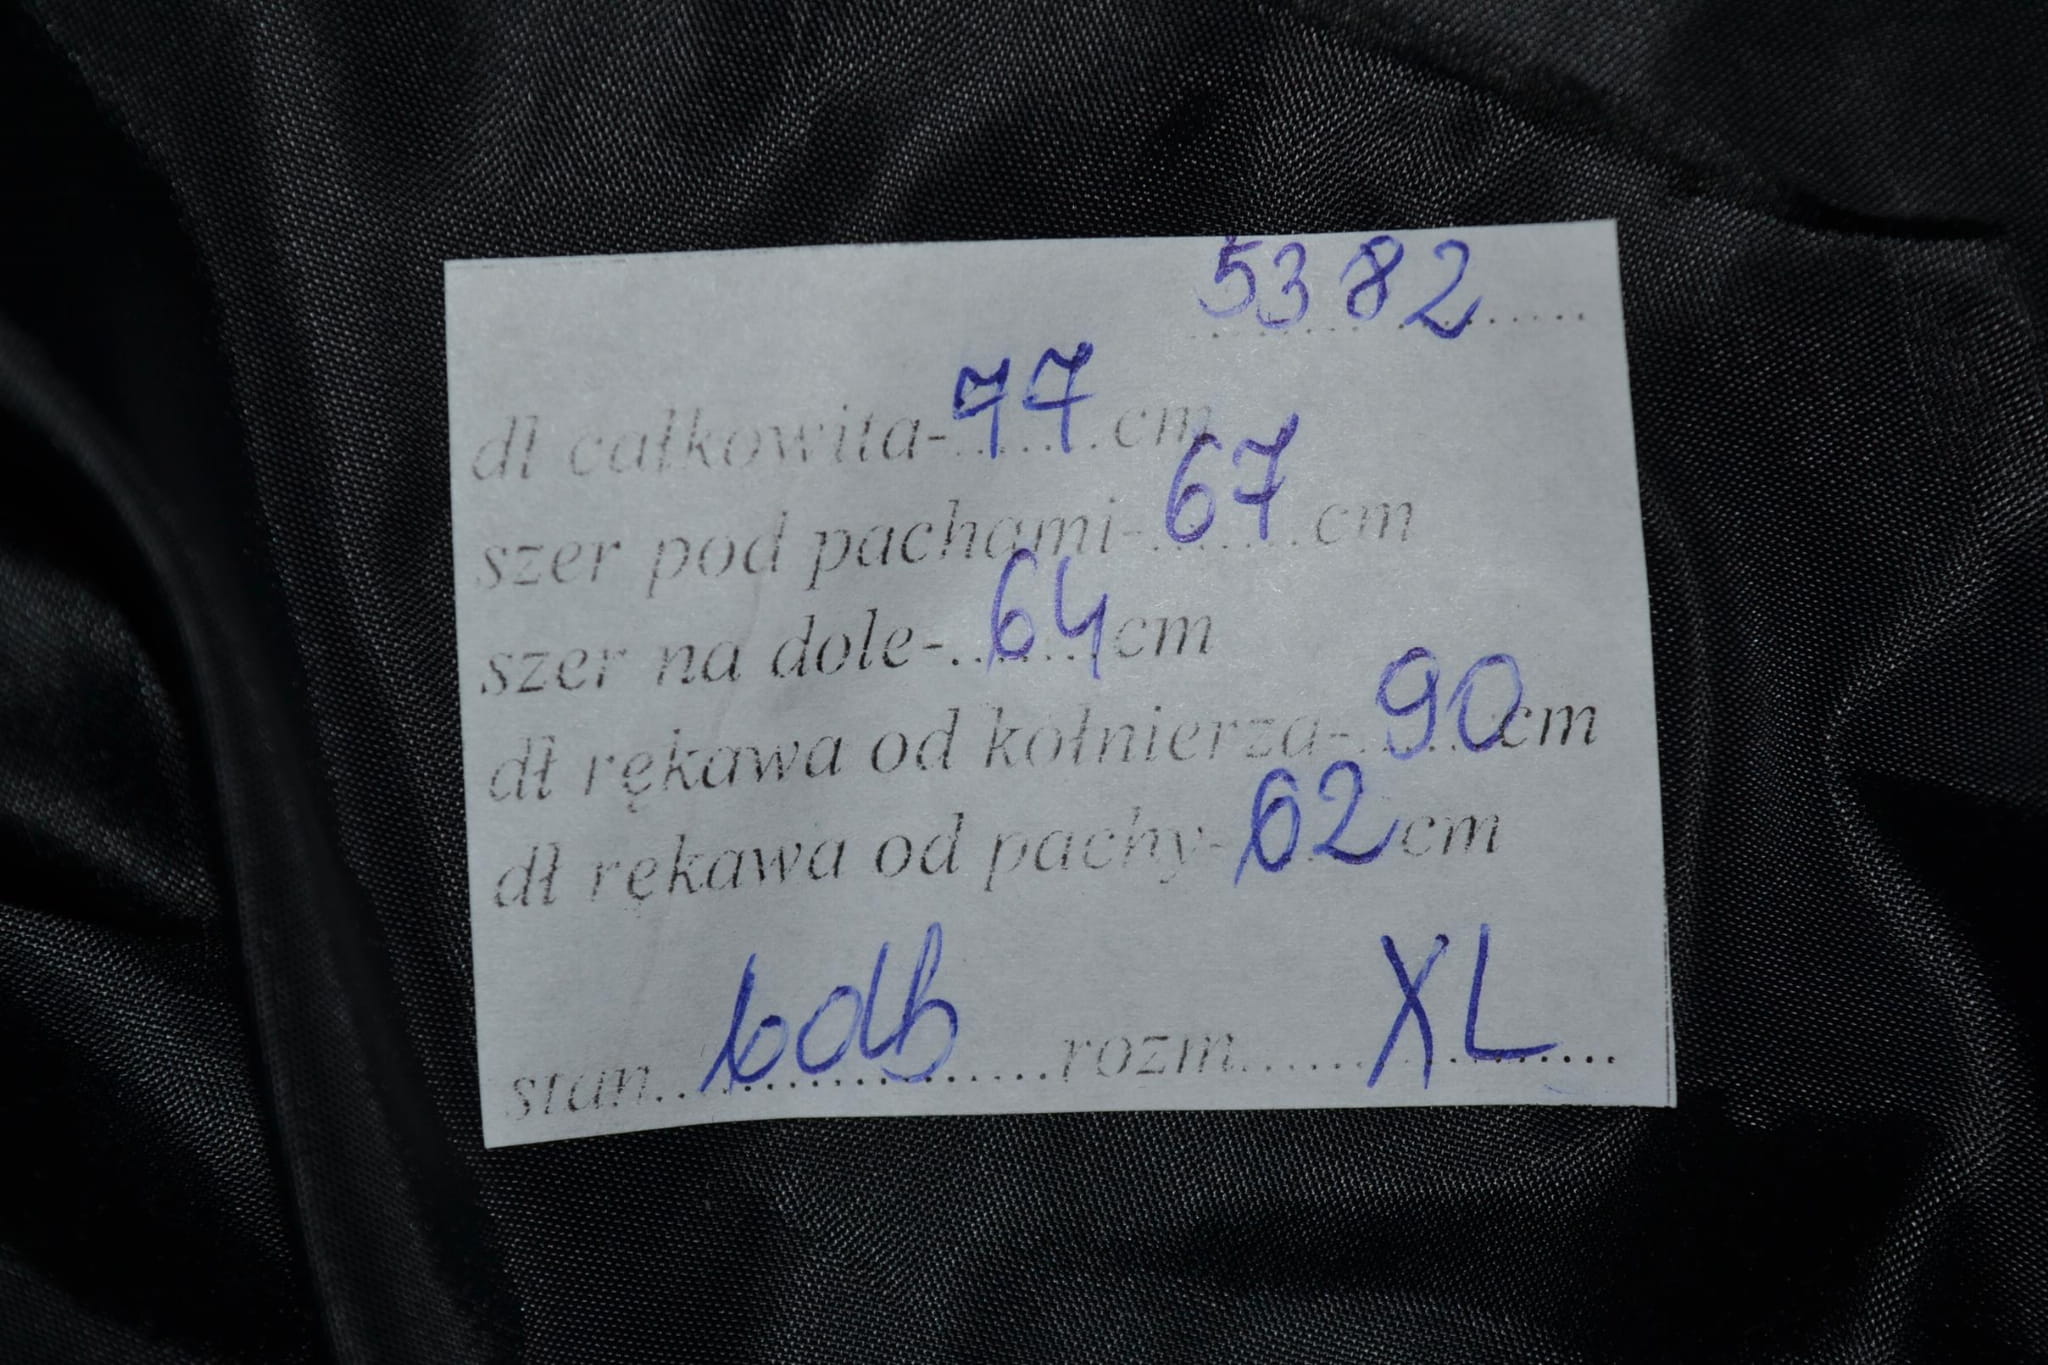 5382
dł całkowita-77cm
szer pod pachami-67cm
szer na dole-64cm
dł rękawa od kołnierza-90cm
dł rękawa od pachy-62cm
stan...bdb...rozm...XL...